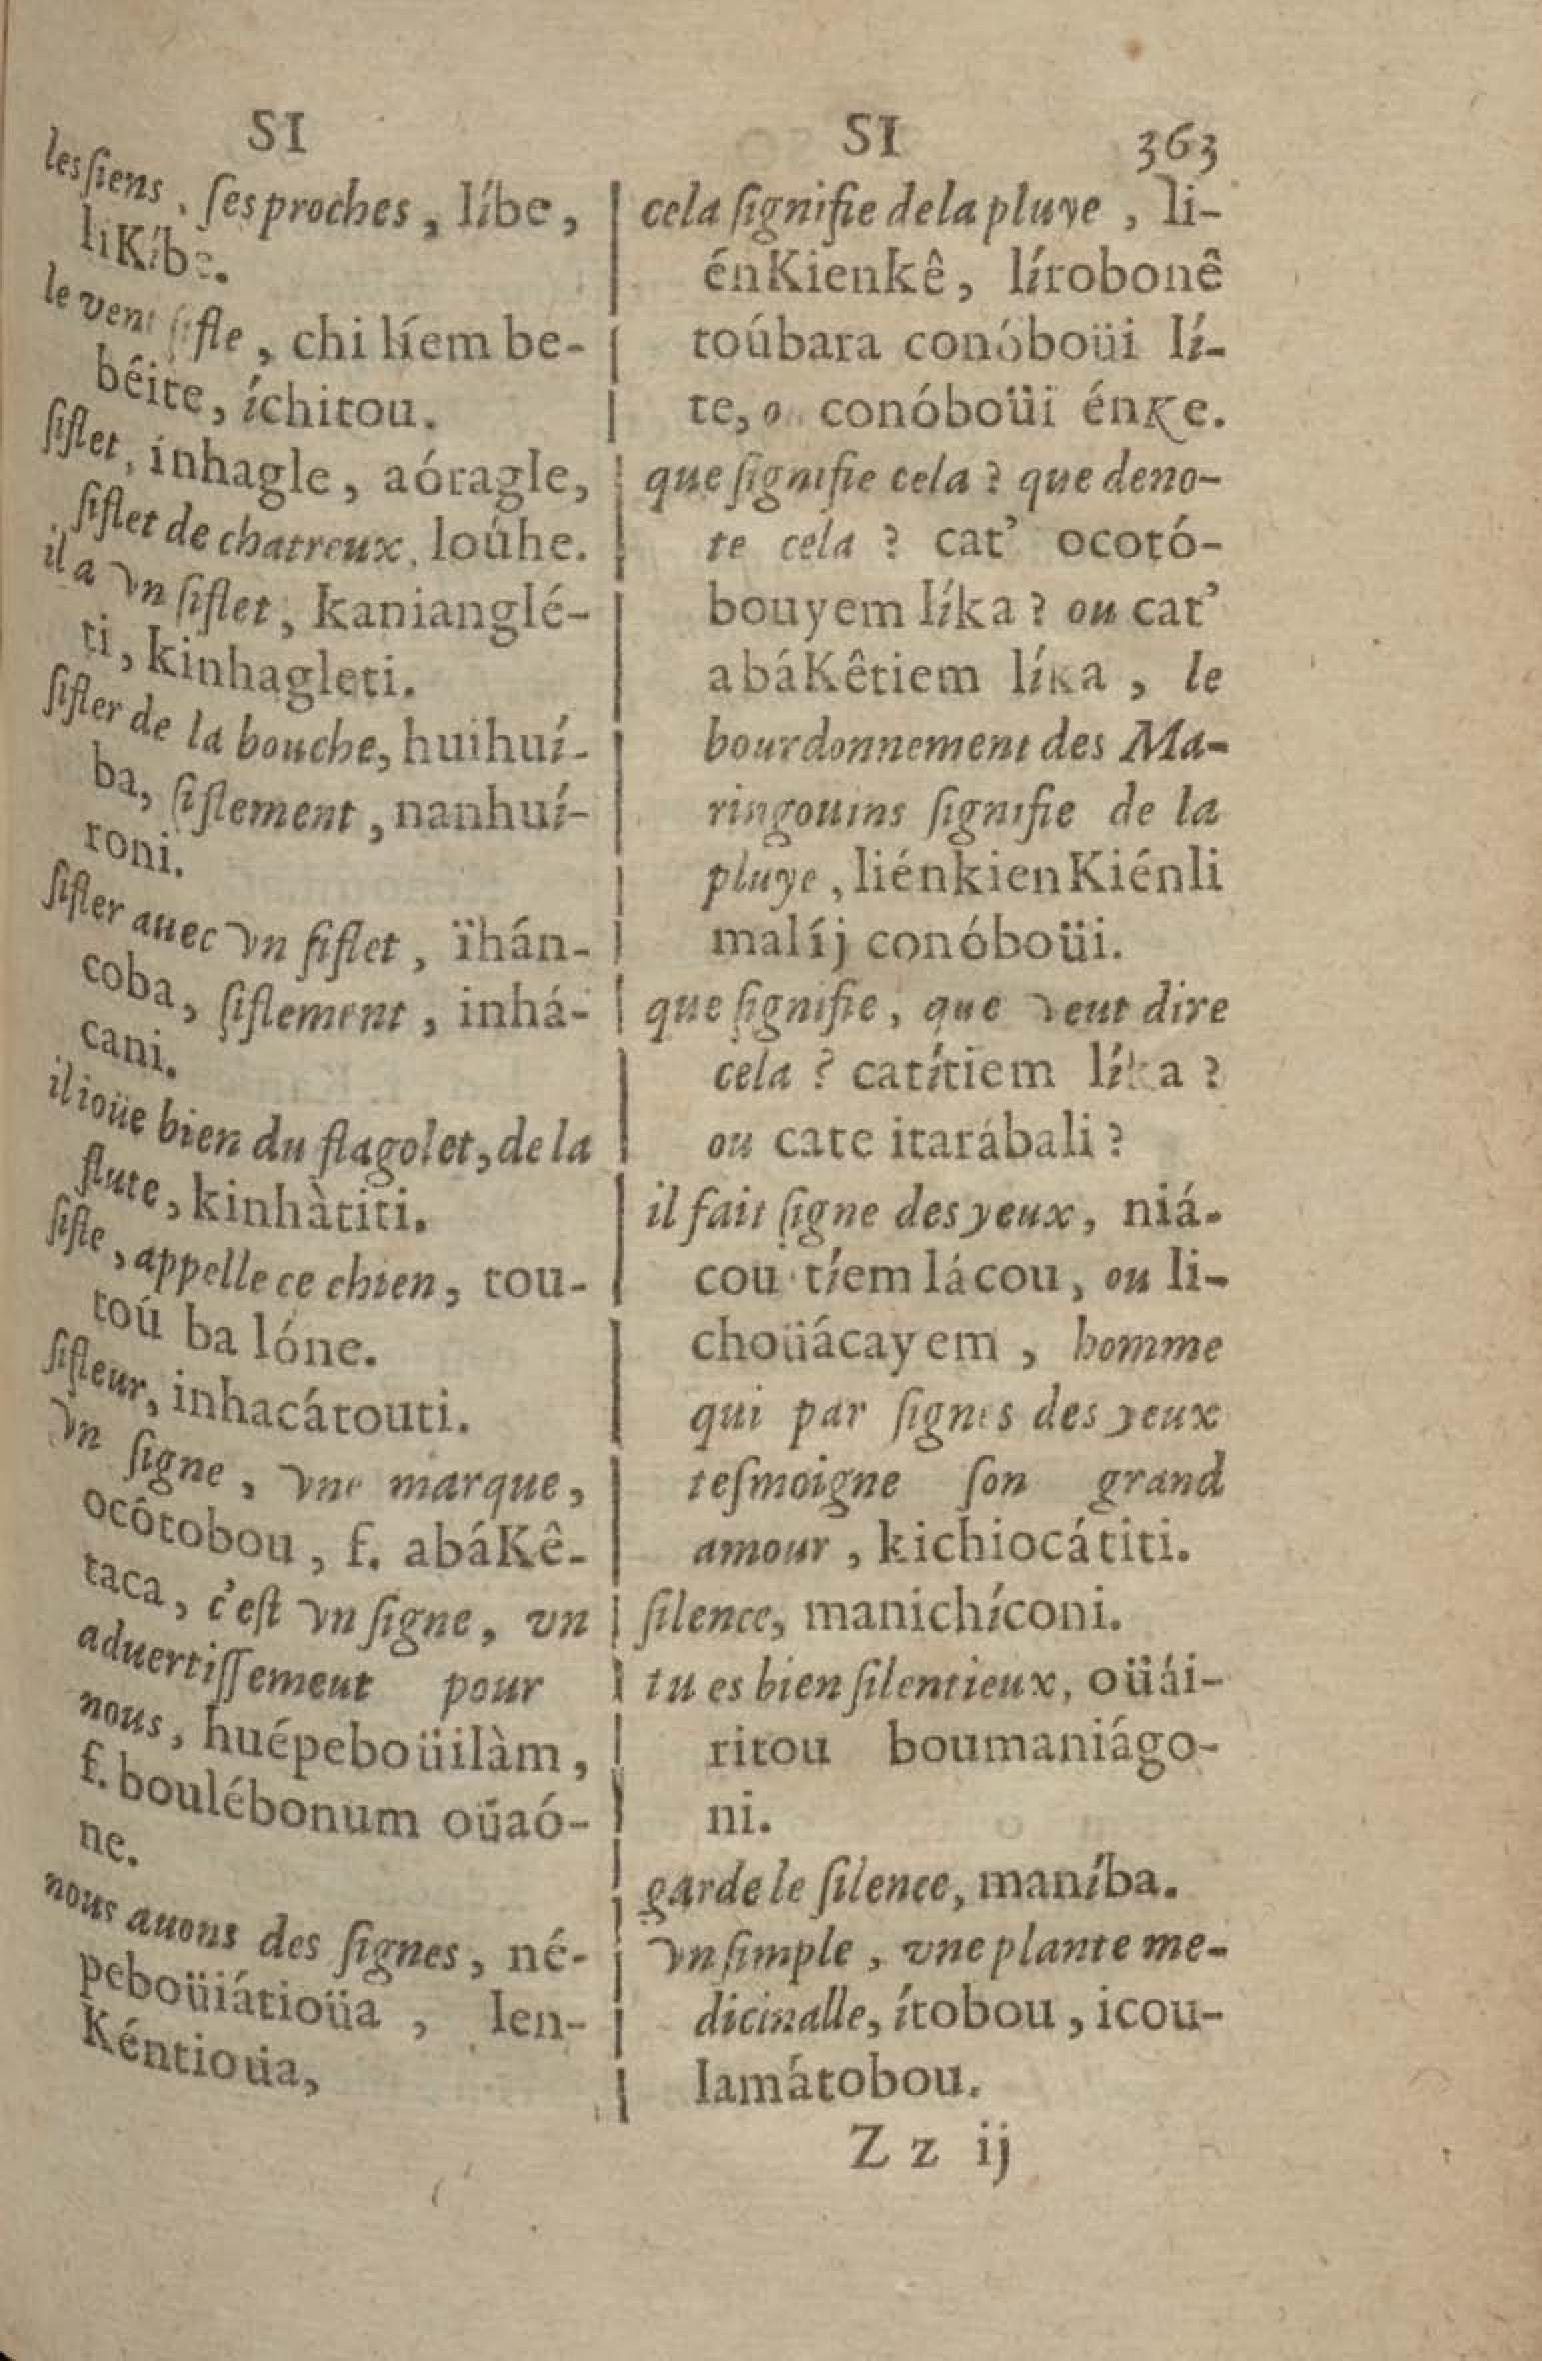 SI
les ſiens, ſes proches, líbe,
liKíbe.
le vent ſifle, chi líem be-
béite, íchitou.
ſiflet, ínhagle, aóragle,
ſiflet de chatreux, loúhe.
il a vn ſiflet, kanianglé-
ti, kinhagleti.
ſifler de la bouche, huihuí-
ba, ſiflement, nanhuí-
roni.
ſifler auec vn ſiflet, ïhán-
coba, ſiflement, inhá-
cani.
il ioüe bien du flagolet, de la
flute, kinhàtiti.
ſifle, appelle ce chien, tou-
toú ba lóne.
ſifleur, inhacátouti.
vn ſigne, vne marque,
ocôtobou, f. abáKê-
taca, c'eſt vn ſigne, vn
aduertiſſement pour
nous, huépeboüilàm,
f. boulébonum oüaó-
ne.
nous auons des ſignes, né-
peboüiátioüa, len-
Kéntioüa,
SI 363
cela ſignifie de la pluye, li-
énKienkê, lírobonê
toúbara conóboüi lí-
te, conóboüi énKe.
que ſignifie cela? que deno-
te cela? cat' ocotó-
bouyem líka? ou cat'
abáKêtiem líka, le
bourdonnement des Ma-
ringouins ſignifie de la
pluye, liénkienKiénli
malíj conóboüi.
que ſignifie, que veut dire
cela? catítiem líka?
ou cate itarábali?
il fait ſigne des yeux, niá-
cou tíem lácou, ou li-
choüácayem, homme
qui par ſignes des yeux
teſmoigne ſon grand
amour, kichiocátiti.
ſilence, manichíconi.
tu es bien ſilentieux, oüái-
ritou boumaniágo-
ni.
garde le ſilence, maníba.
vn ſimple, vne plante me-
dicinalle, ítobou, icou-
lamátobou.
Z z ij